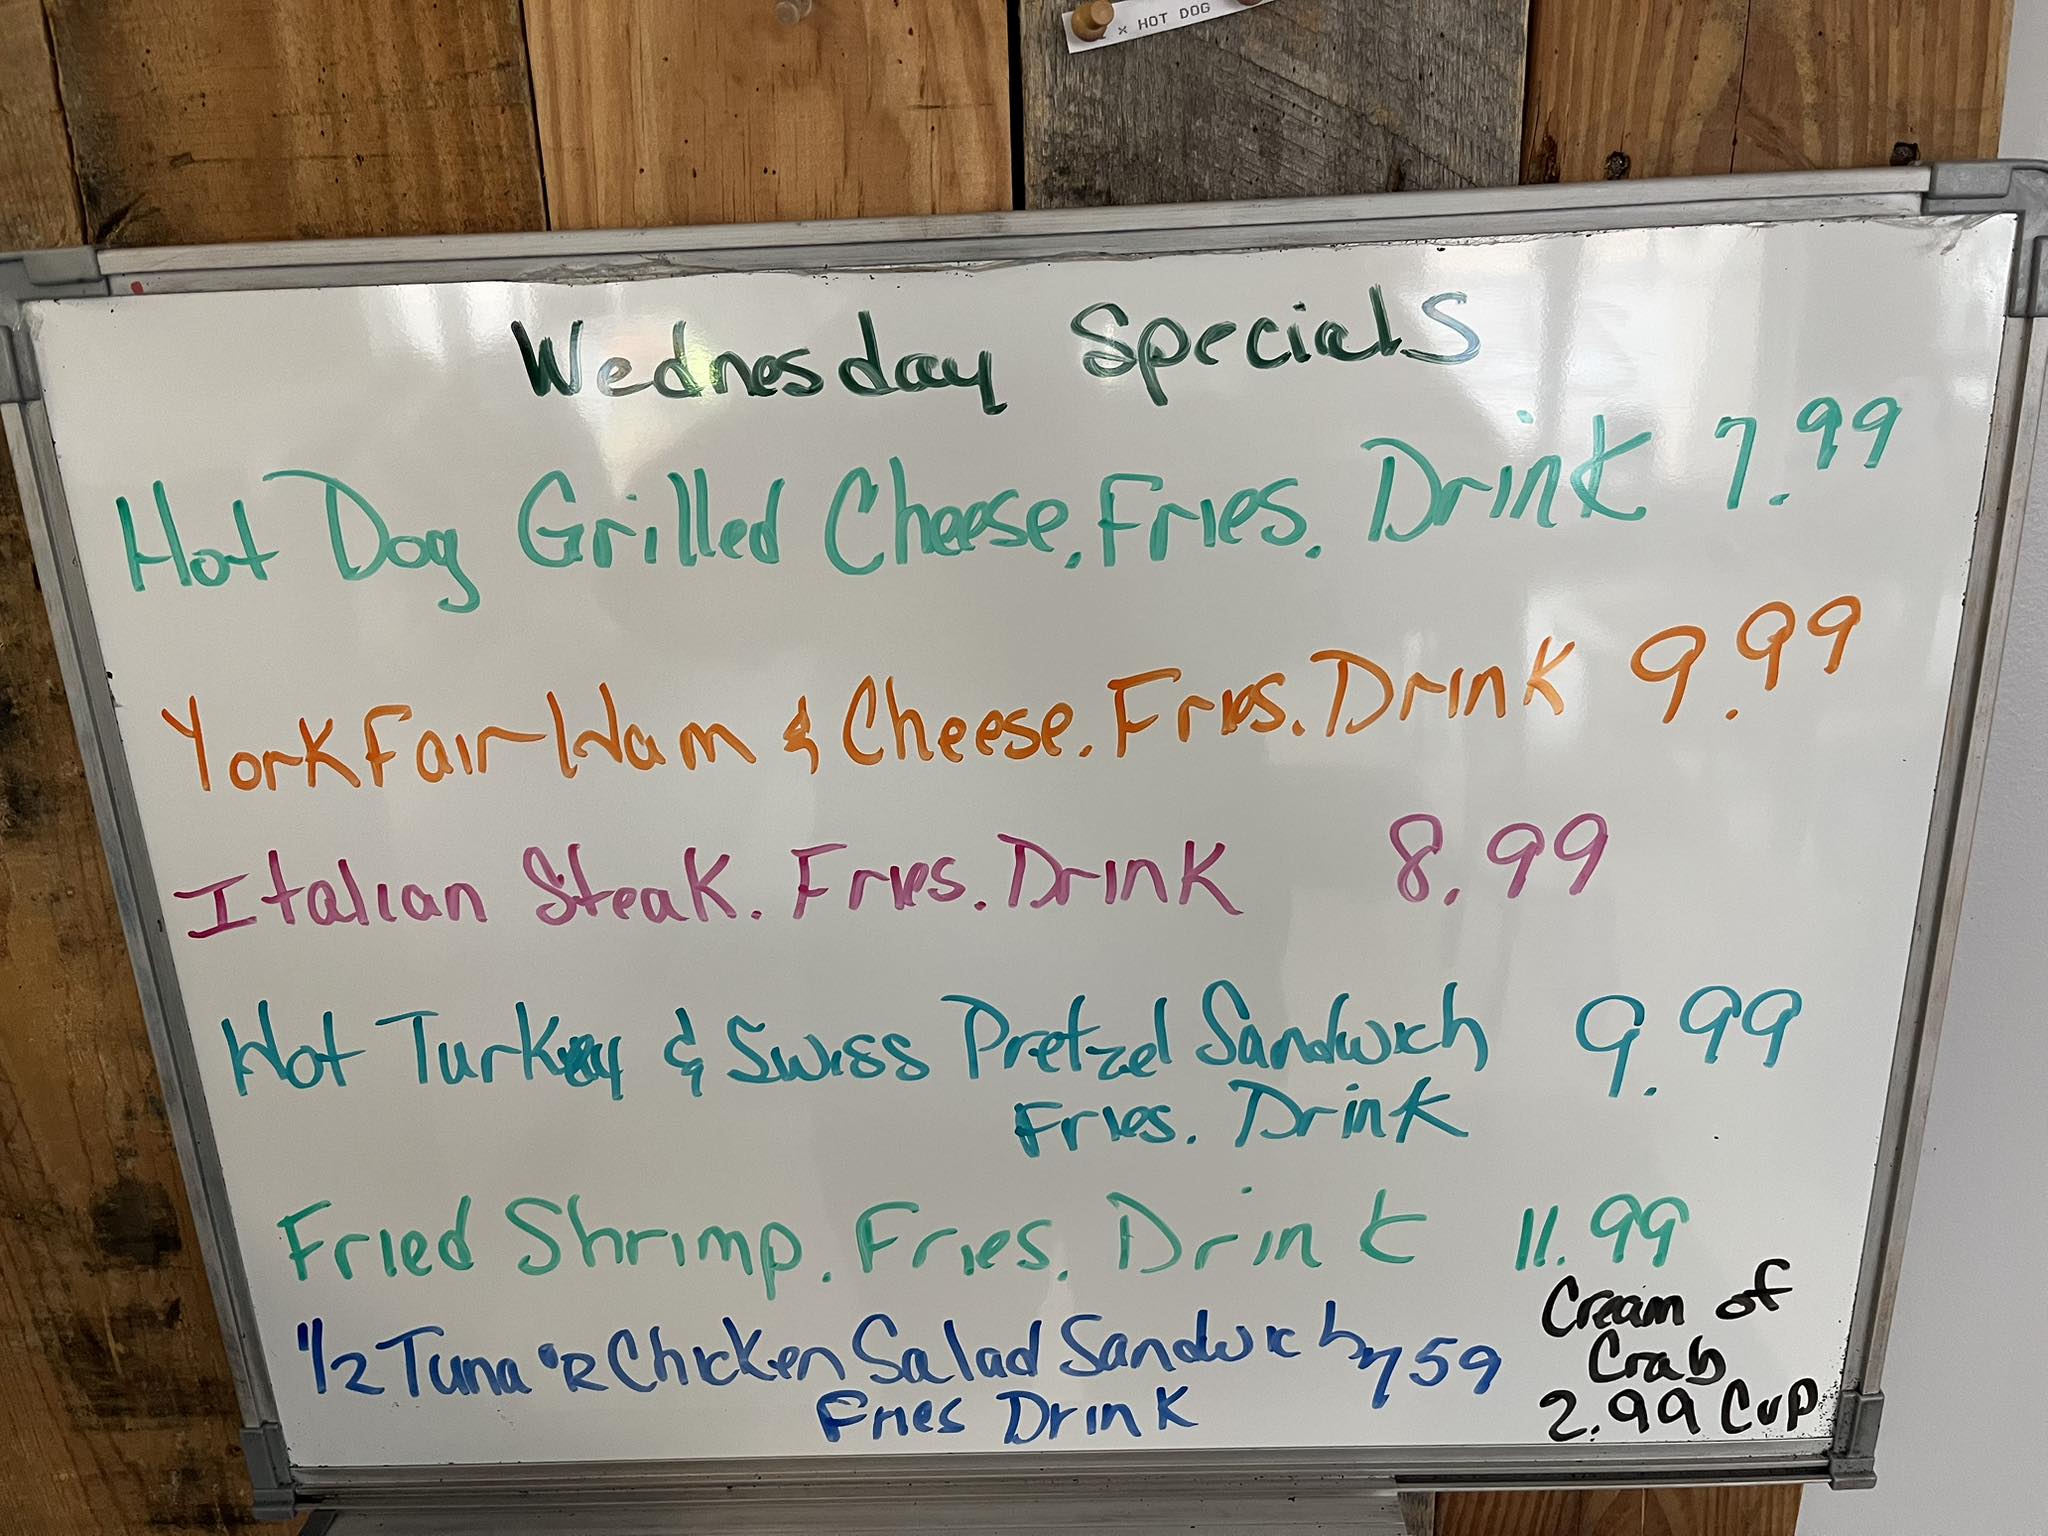 x HOT DOG
Wednesday Specials
Hot Dog Grilled Cheese. Fries. Drink 7.99
York Fair Ham & Cheese. Fries. Drink 9.99
Italian Steak. Fries. Drink 8.99
Hot Turkey & Swiss Pretzel Sandwich 9.99
Fries. Drink
Fried Shrimp. Fries. Drink 11.99
1/2 Tuna OR Chicken Salad Sandwich 759
Fries Drink
Cream of
Crab
2.99 Cup